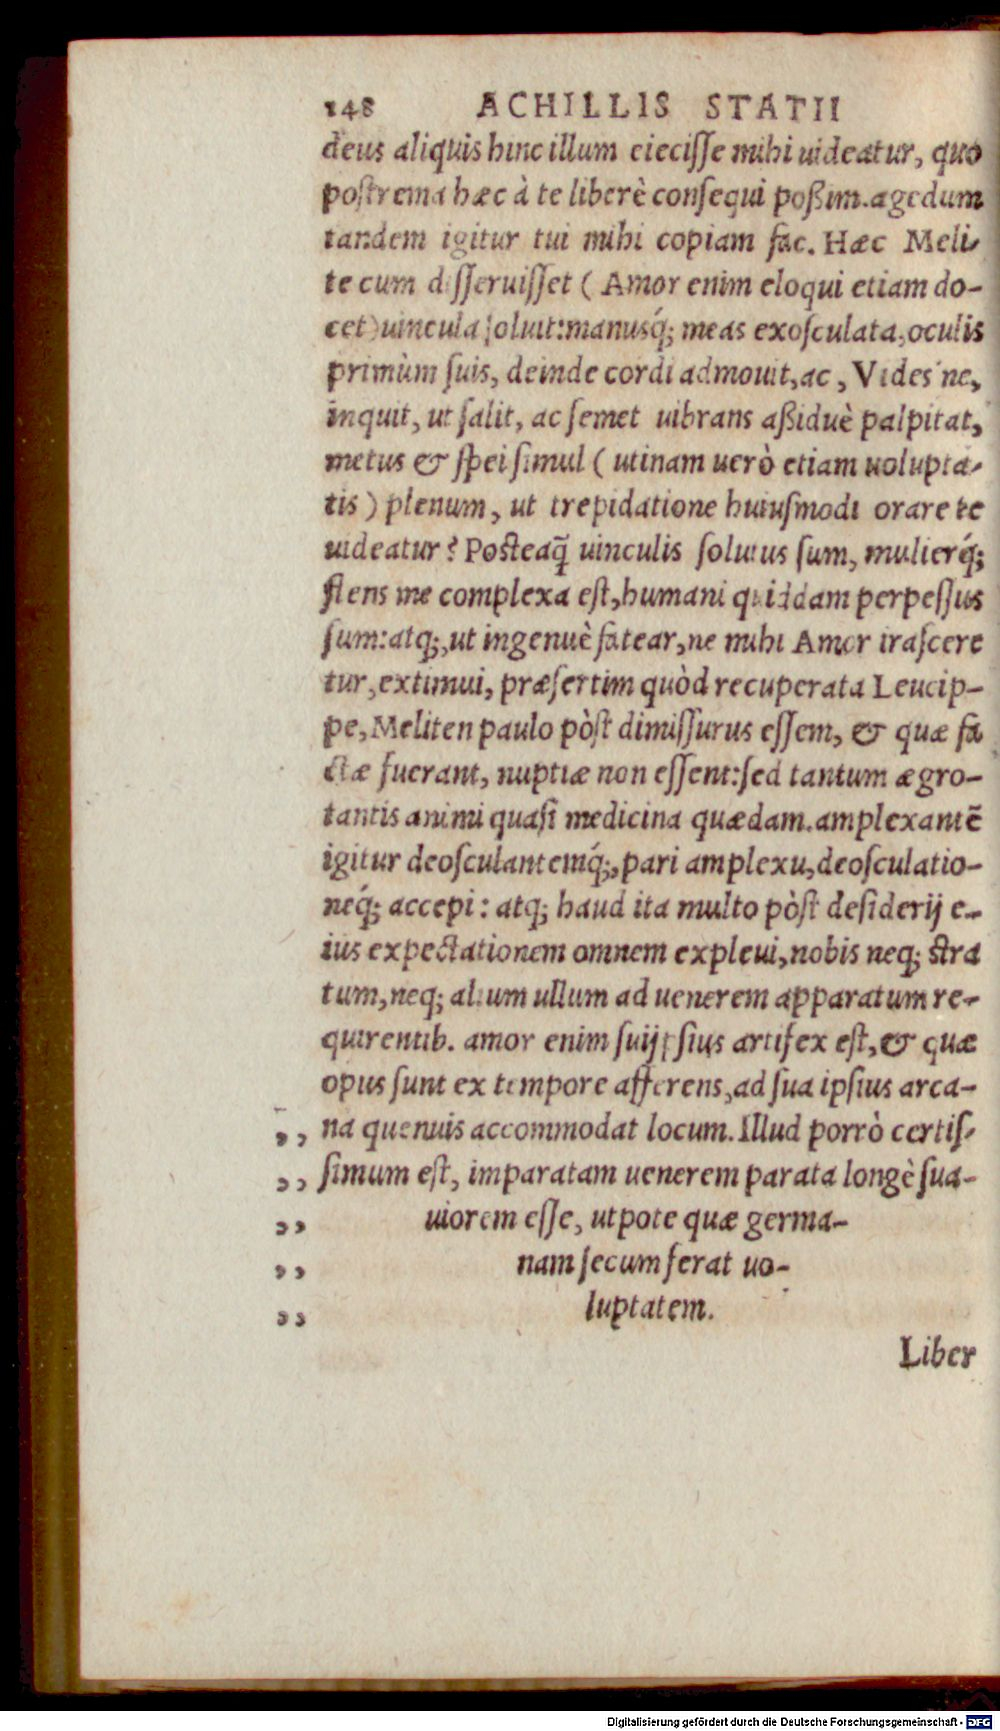 148 ACHILLIS STATII
deus aliquis hinc illum eiecisse mihi uideatur, quo
postrema hæc à te liberè consequi poßim. agedum
tandem igitur tui mihi copiam fac. Hæc Meli-
te cum disseruisset (Amor enim eloqui etiam do-
cet) uincula soluit: manusq́; meas exosculata, oculis
primùm suis, deinde cordi admouit, ac, Vides'ne,
inquit, ut salit, ac semet uibrans aßiduè palpitat,
metus & spei simul (utinam uerò etiam uolupta-
tis) plenum, ut trepidatione huiusmodi orare te
uideatur? Posteaq̃ uinculis solutus sum, mulierq́;
flens me complexa est, humani quiddam perpessus
sum: atq;, ut ingenuè fatear, ne mihi Amor irascere
tur, extimui, præsertim quòd recuperata Leucip-
pe, Meliten paulo pòst dimissurus essem, & quæ fa
ctæ fuerant, nuptiæ non essent: sed tantum ægro-
tantis animi quasi medicina quædam. amplexantẽ
igitur deosculantemq́;, pari amplexu, deosculatio-
neq́; accepi: atq; haud ita multo pòst desiderij e-
ius expectationem omnem expleui, nobis neq; stra
tum, neq; alium ullum ad uenerem apparatum re-
quirentib. amor enim suijpsius artifex est, & quæ
opus sunt ex tempore afferens, ad sua ipsius arca-
,, na quenuis accommodat locum. Illud porrò certis-
,, simum est, imparatam uenerem parata longè sua-
,, uiorem esse, utpote quæ germa-
,, nam secum ferat uo-
,, luptatem.
Liber
Digitalisierung gefördert durch die Deutsche Forschungsgemeinschaft - DFG